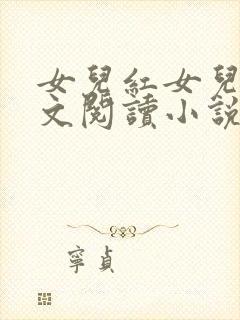 女兒紅女兒
文閱讀小說
寧貞